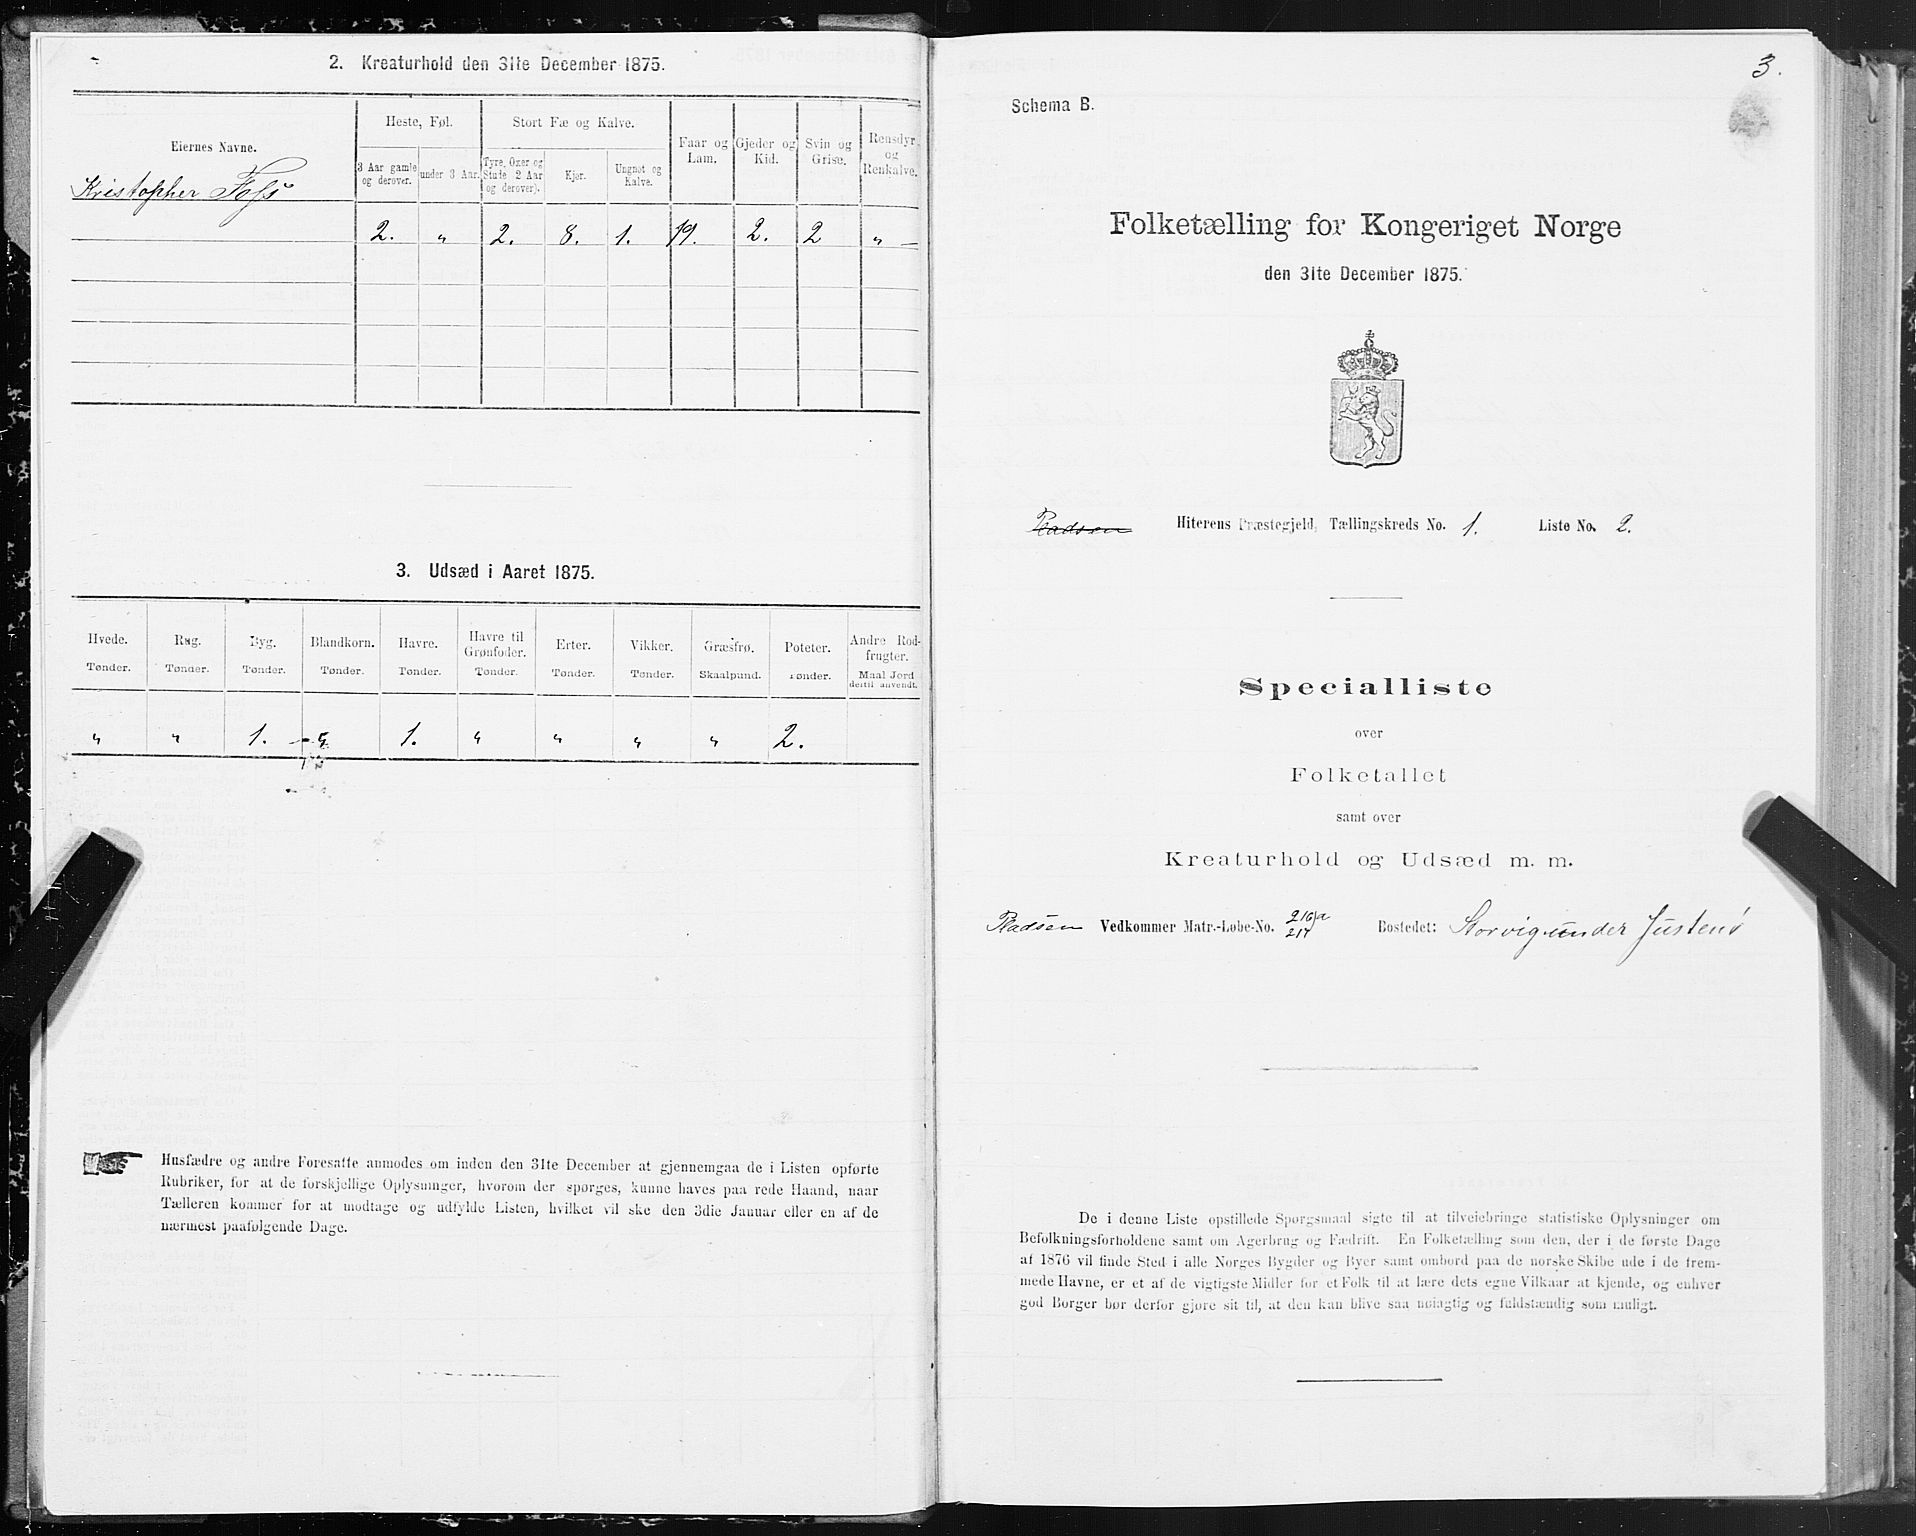 2. Kreaturhold den 31te December 1875.
Eiernes Navne.
Heste, Føl.
Stort Fæ og Kalve.
Faar og Lam.
Gjeder og Kid.
Svin og Grise.
Rensdyr og Renkalve.
3 Aar gamle og derover.
under 3 Aar.
Tyre, Oxer og Stude 2 Aar og derover).
Kjør.
Ungnøt og Kalve.
Kristopher Foss
2. " 2. 8. 1. 19. 2. 2 " —
3. Udsæd i Aaret 1875.
Hvede. Rug. Byg. Blandkorn. Havre. Havre til Grønfoder. Erter. Vikker. Græsfrø. Poteter. Andre Rodfrugter.
Tønder. Tønder. Tønder. Tønder. Tønder. Tønder. Tønder. Tønder. Skaalpund. Tønder. Maal Jord dertil anvendt.
" " 1. " 1. " " " " 2.
Husfædre og andre Foresatte anmodes om inden den 31te December at gjennemgaa de i Listen opførte
Rubriker, for at de forskjellige Oplysninger, hvorom der spørges, kunne haves paa rede Haand, naar
Tælleren kommer for at modtage og udfylde Listen, hvilket vil ske den 3die Januar eller en af de
nærmest paafølgende Dage.
3.
Schema B.
Folketælling for Kongeriget Norge
den 31te December 1875.
Hiterens Præstegjeld, Tællingskreds No. 1. Liste No. 2.
Specialliste
over
Folketallet
samt over
Kreaturhold og Udsæd m. m.
Vedkommer Matr.-Løbe-No. 216a 217 Bostedet: Storvig under Justenø
De i denne Liste opstillede Spørgsmaal sigte til at tilveiebringe statistiske Oplysninger om
Befolkningsforholdene samt om Agerbrug og Fædrift. En Folketælling som den, der i de første Dage
af 1876 vil finde Sted i alle Norges Bygder og Byer samt ombord paa de norske Skibe ude i de frem-
mede Havne, er et af de vigtigste Midler for et Folk til at lære dets egne Vilkaar at kjende, og enhver
god Borger bør derfor gjøre sit til, at den kan blive saa nøiagtig og fuldstændig som muligt.